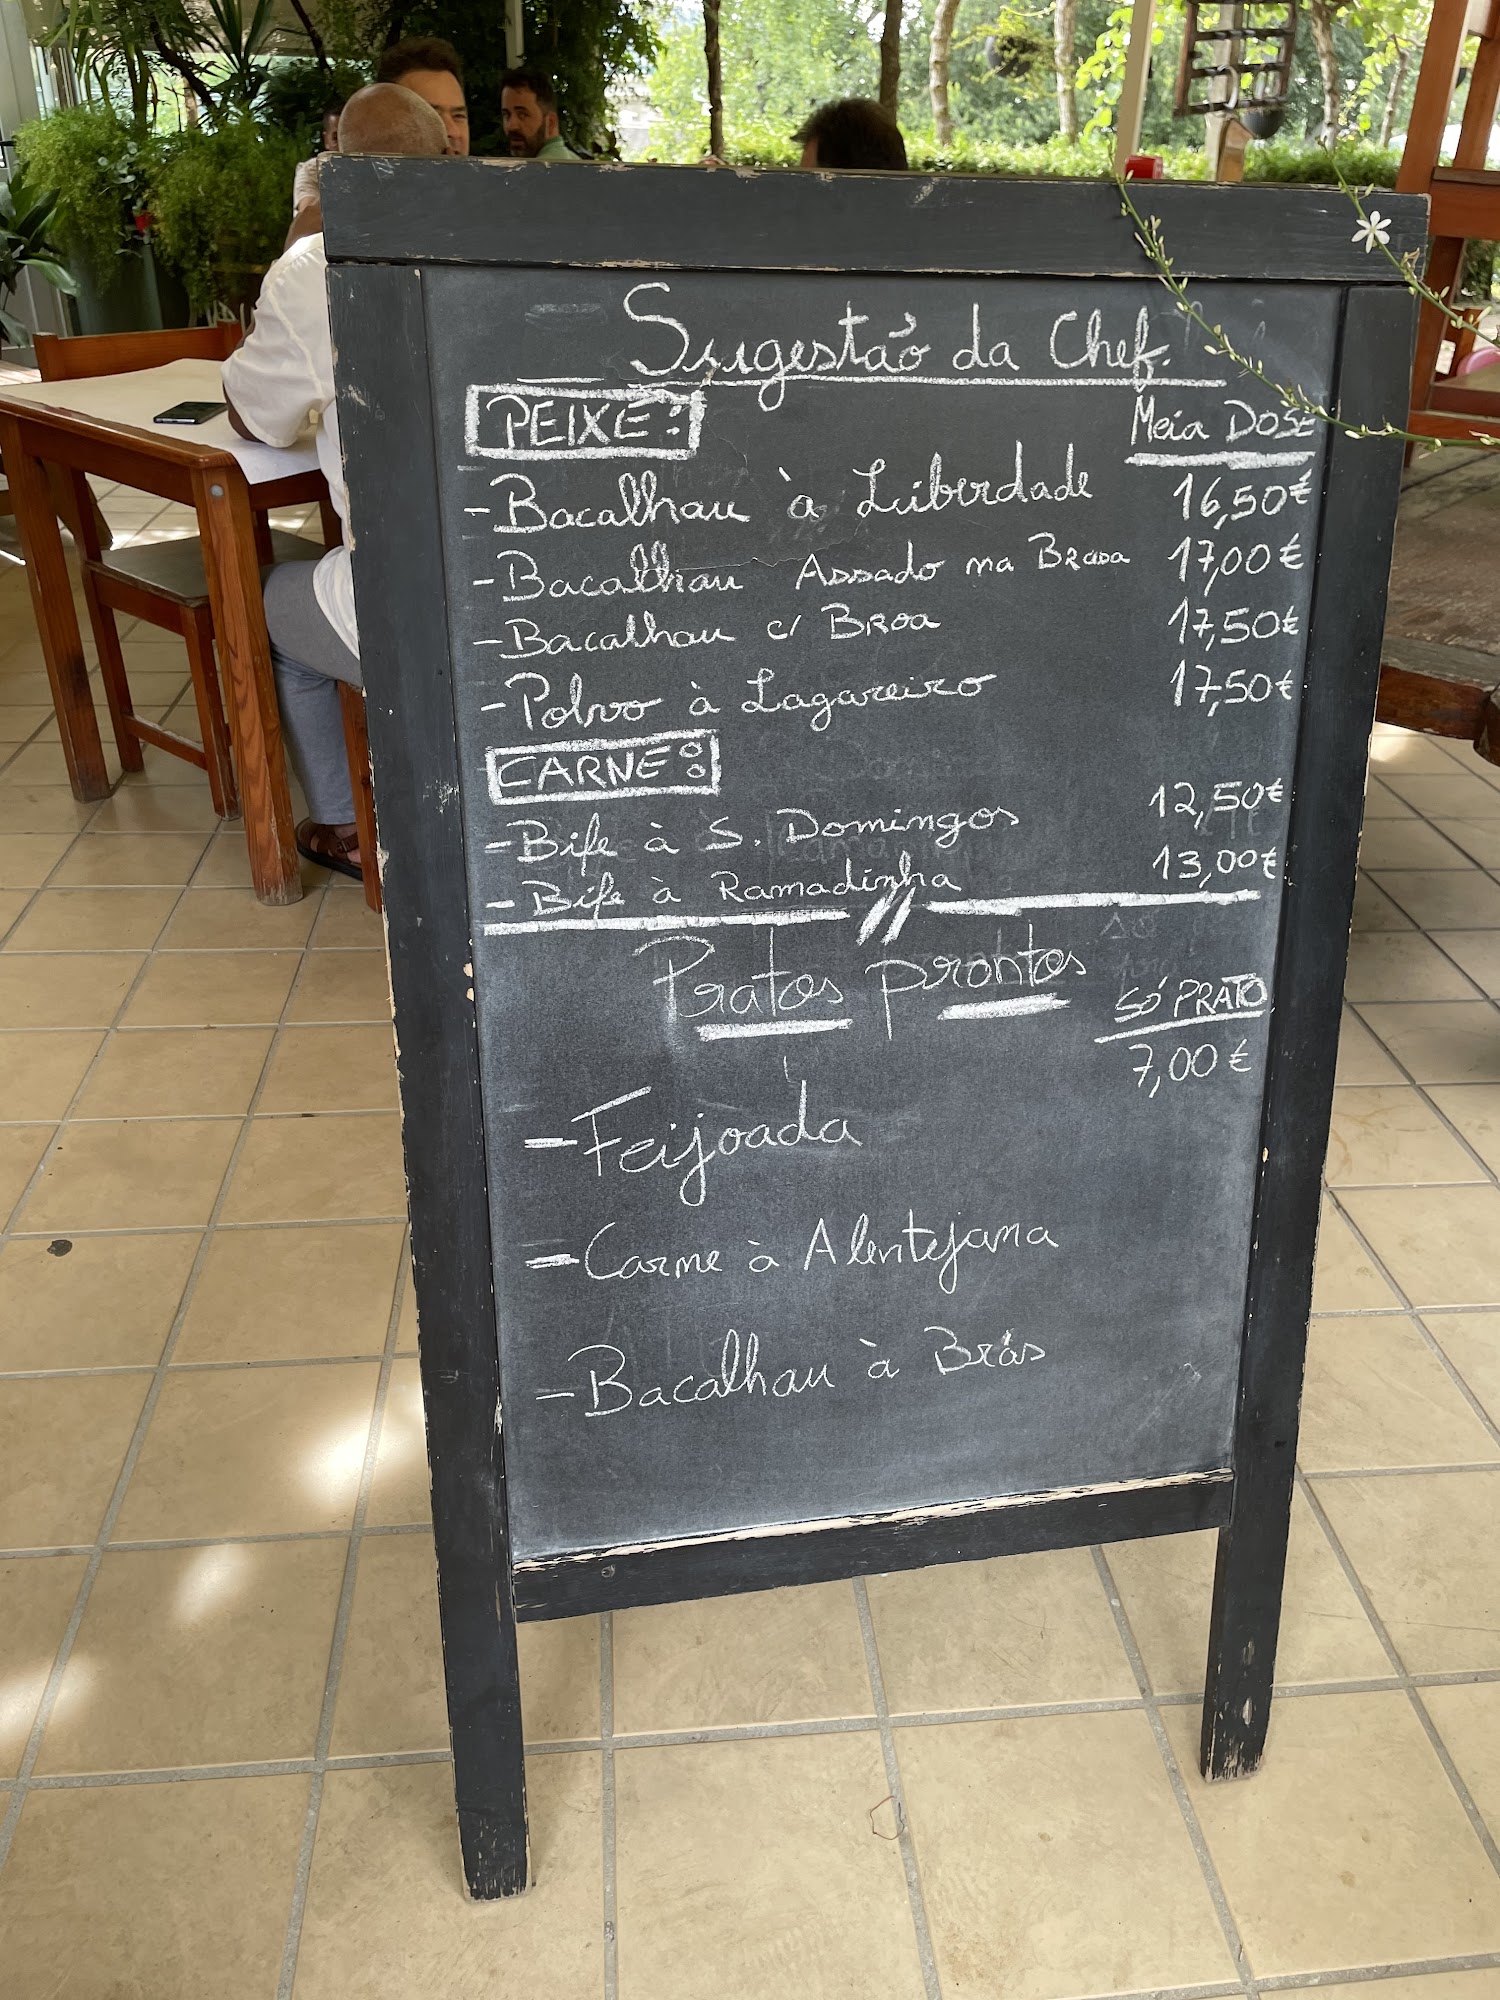 Sugestão da Chef.
PEIXE: Meia DOSE
- Bacalhau à Liberdade 16,50€
- Bacalhau Assado na Brasa 17,00€
- Bacalhau c/ Broa 17,50€
- Polvo à Lagareiro 17,50€
CARNE:
- Bife à S. Domingos 12,50€
- Bife à Ramadinha 13,00€
Pratos prontos
SÓ PRATO
7,00€
- Feijoada
- Carne à Alentejana
- Bacalhau à Brás